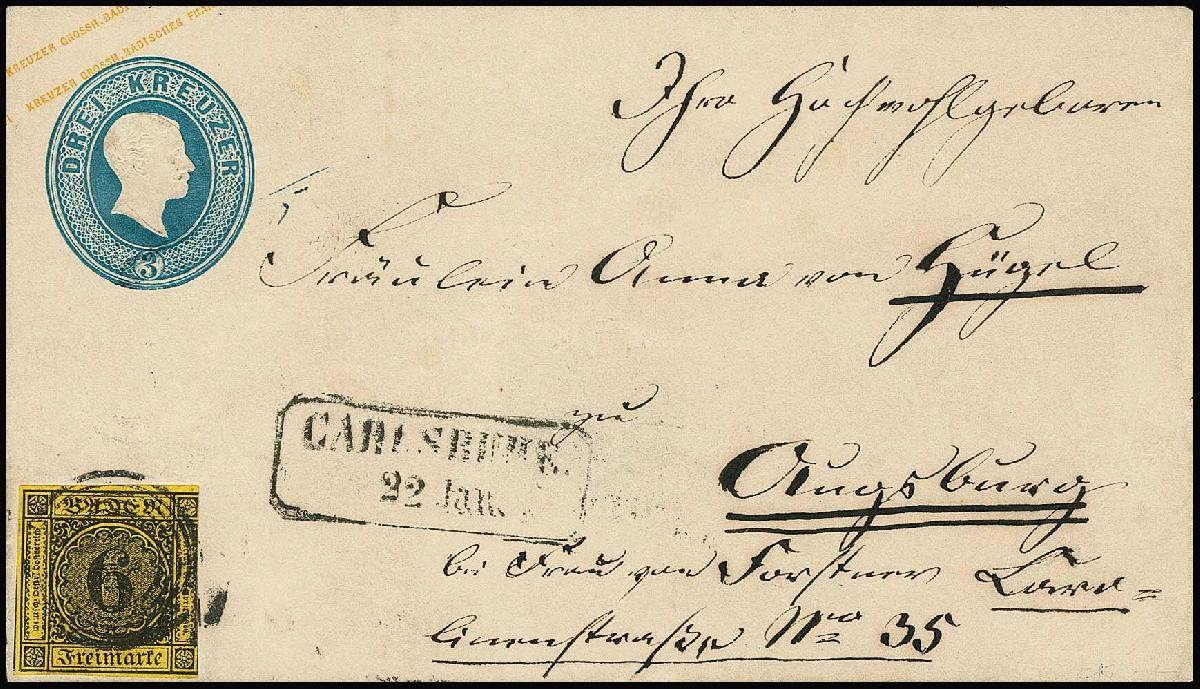 KREUZER GROSSH. BADI
KREUZER GROSSH. BADISCHES FRA
DREI KREUZER
3
Ihro Hochwohlgeboren
Fräulein Anna von Hügel
zu
CARLSRUHE.
22 Jan.
Augsburg
bei Frau von Forstner Caro=
linenstraße No 35
BADEN
6
Freimarke